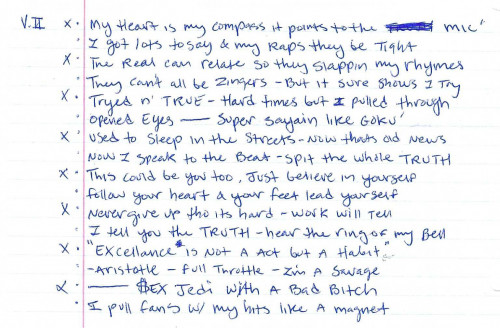 V.II x • My Heart is my compass it points to the mic"
• I got lots to say & my Raps they be Tight
x • The Real can relate so they slappin my rhymes
• They can't all be Zingers - But it sure shows I Try
x • Tryed n' TRUE - Hard times but I pulled through
• opened Eyes — Super Sayain like Goku'
x • Used to Sleep in the Streets - Now thats old News
• Now I speak to the Beat - spit the whole TRUTH
x • This could be you too, Just believe in yourself
• follow your heart & your feet lead yourself
x • Never give up tho its hard - work will Tell
• I tell you the TRUTH - hear the ring of my Bell
x • "EXcellance" is Not A Act but A Habit"
• - Aristotle - full Throttle - I'm A Savage
x • — SEX Jedi with A Bad Bitch
• I pull fans w/ my hits like A magnet